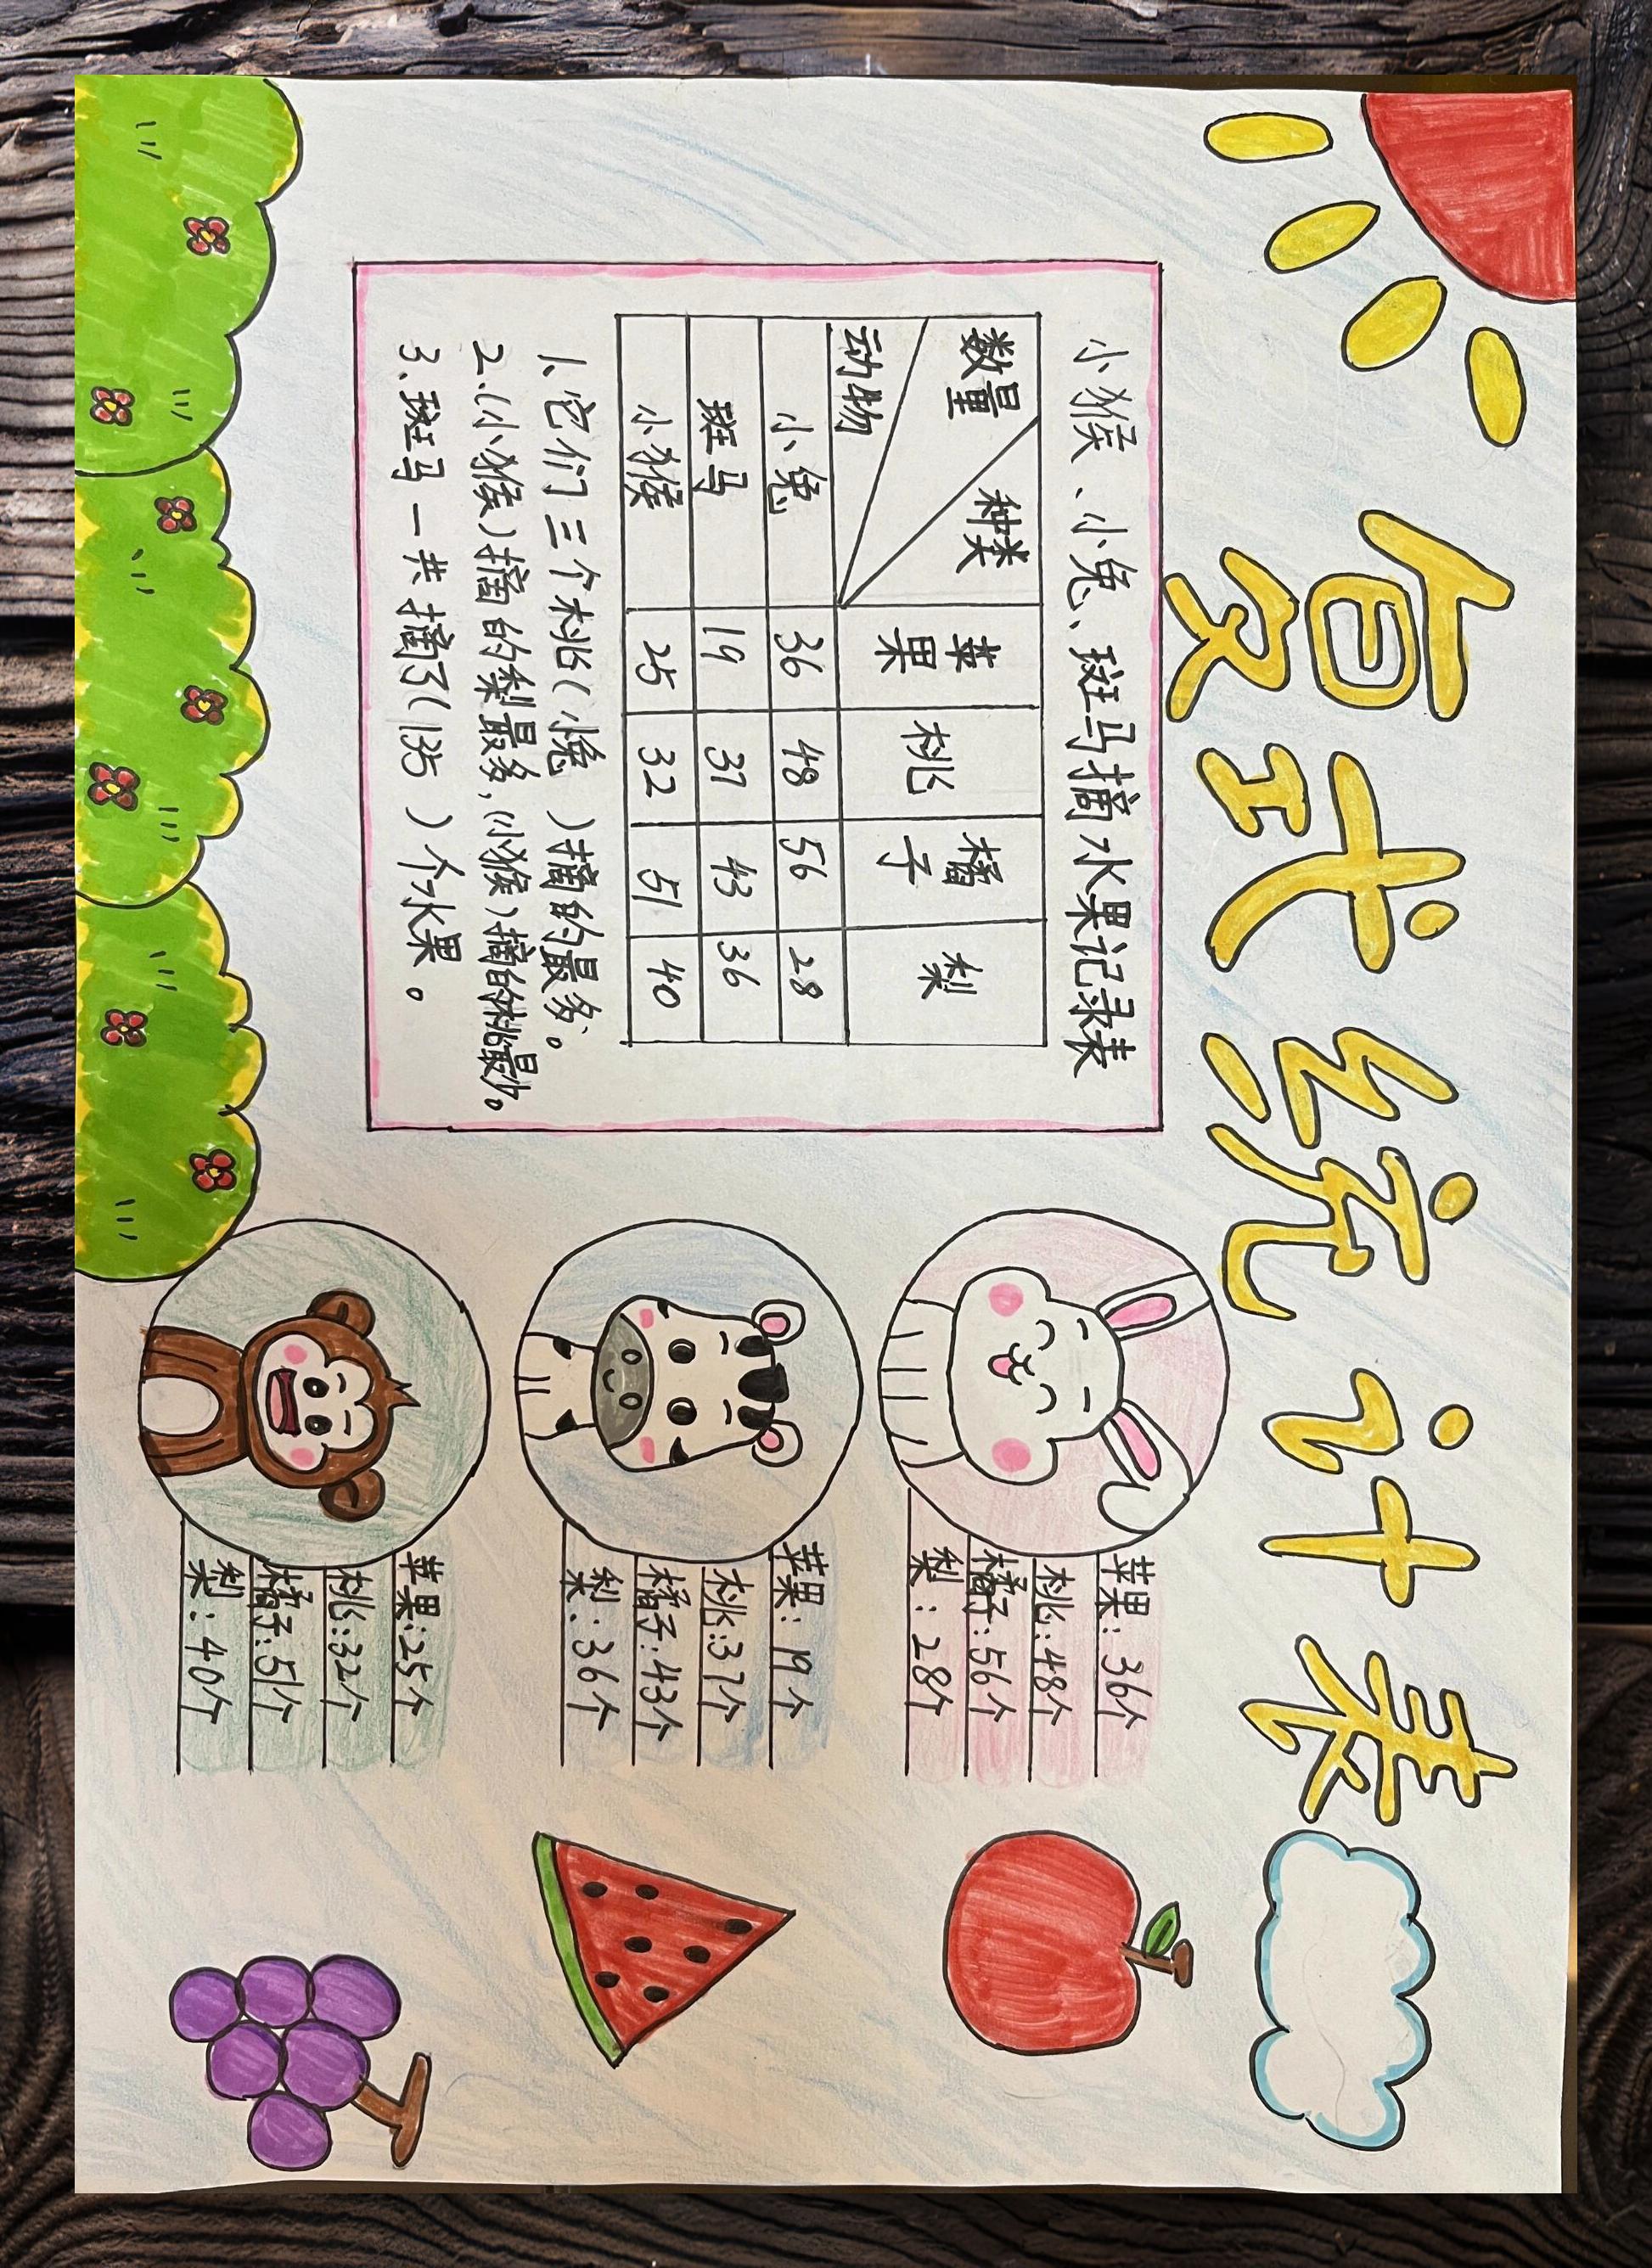 复式统计表
小猴、小兔、斑马摘水果记录表
数量 种类 苹果 桃 橘子 梨
动物
小兔 36 48 56 28
斑马 19 37 43 36
小猴 25 32 51 40
1、它们三个桃(小兔)摘的最多。
2、(小猴)摘的梨最多,(小猴)摘的桃最少。
3、斑马一共摘了(135)个水果。
苹果:36个
桃:48个
橘子:56个
梨:28个
苹果:19个
桃:37个
橘子:43个
梨:36个
苹果:25个
桃:32个
橘子:51个
梨:40个